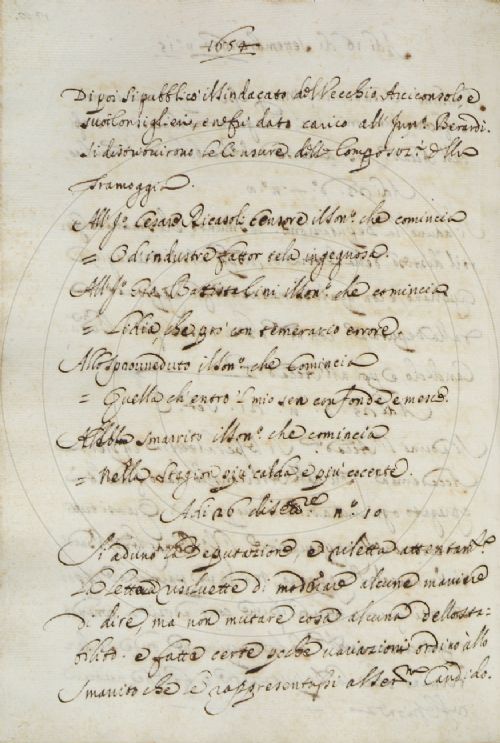 1654
Di poi si pubblicò il sindacato del Vecchio Arciconsolo e
suoi Consiglieri, e ne fu dato carico all' Inno. Berardi.
Si distribuirono le Censure delle Composizi. della
Tramoggia.
All' Jo. Cesare Ricasoli Censore il sono. che comincia
= O d'industre fattor tela ingegnosa.
All' Jo. Gio. Battista il sono. che comincia
= Lidia, che già con temerario errore.
Allo Sprovveduto il sono. che Comincia
= Quella ch'entro 'l mio sen confonde e mesce.
Allo Smarrito il sono. che comincia
= Nella Stagion più calda e più cocente.
Adi 26 di Sett.re n.o 10
Si adunò la Deputazione e riletta attentam.te
la lettera risolvette di mutare alcune maniere
di dire, ma non mutare cosa alcuna dello sta-
bilito. e fatte certe poche variazioni ordinò allo
Smarrito che la rappresentassi al Ser.mo Candido.